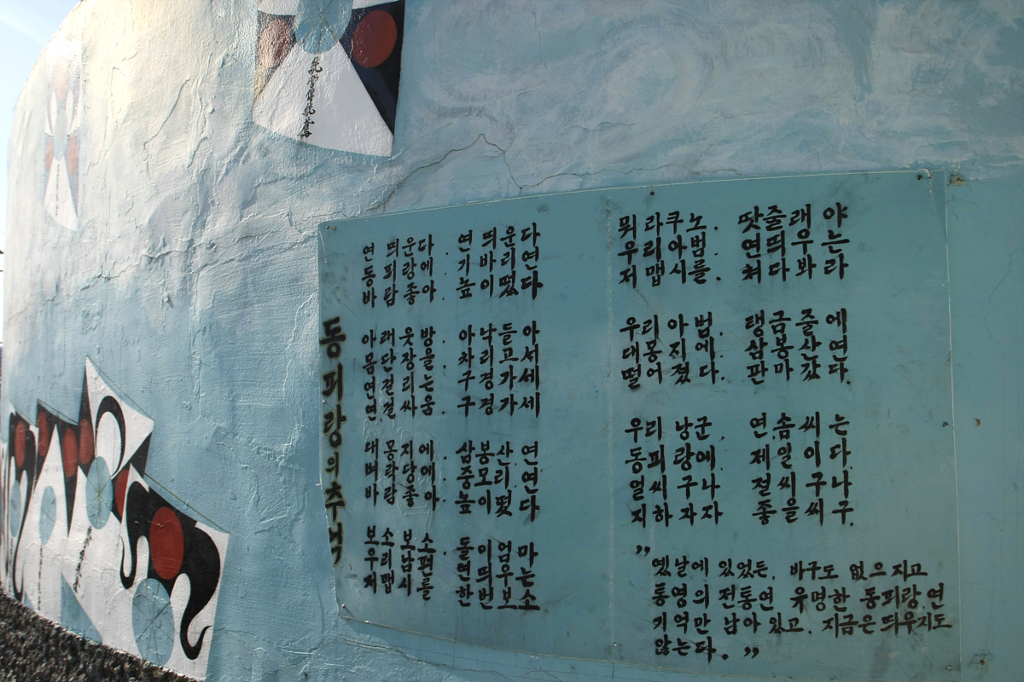 동피랑의 추억
연 띄운다. 연 띄운다
동피랑에. 기바리 연
바람좋아. 높이떴다
아래웃방. 아낙들아
몸단장을. 차리고서세
연걸리는. 구경가세
연걸싸움. 구경가세
대몽지에. 삼봉산.연
벼락당에. 중모리.연
바람좋아 높이떴다
보소보소. 돌이엄마
우리남편 연띄우는
저맵시를 한번보소
뭐라쿠노. 땃줄래야
우리아범. 연띄우는
저맵시를. 쳐다봐라
우리아범. 탱금줄에
대몽지에. 삼봉산연
떨어졌다. 판마갔다.
우리낭군. 연솜씨는
동피랑에. 제일이다
얼씨구나 절씨구나
지하자자 좋을씨구.
"
옛날에 있었든, 바구도 없으지고
통영의 전통연 유명한 동피랑.연
기억만 남아있고. 지금은띄우지도
않는다. "